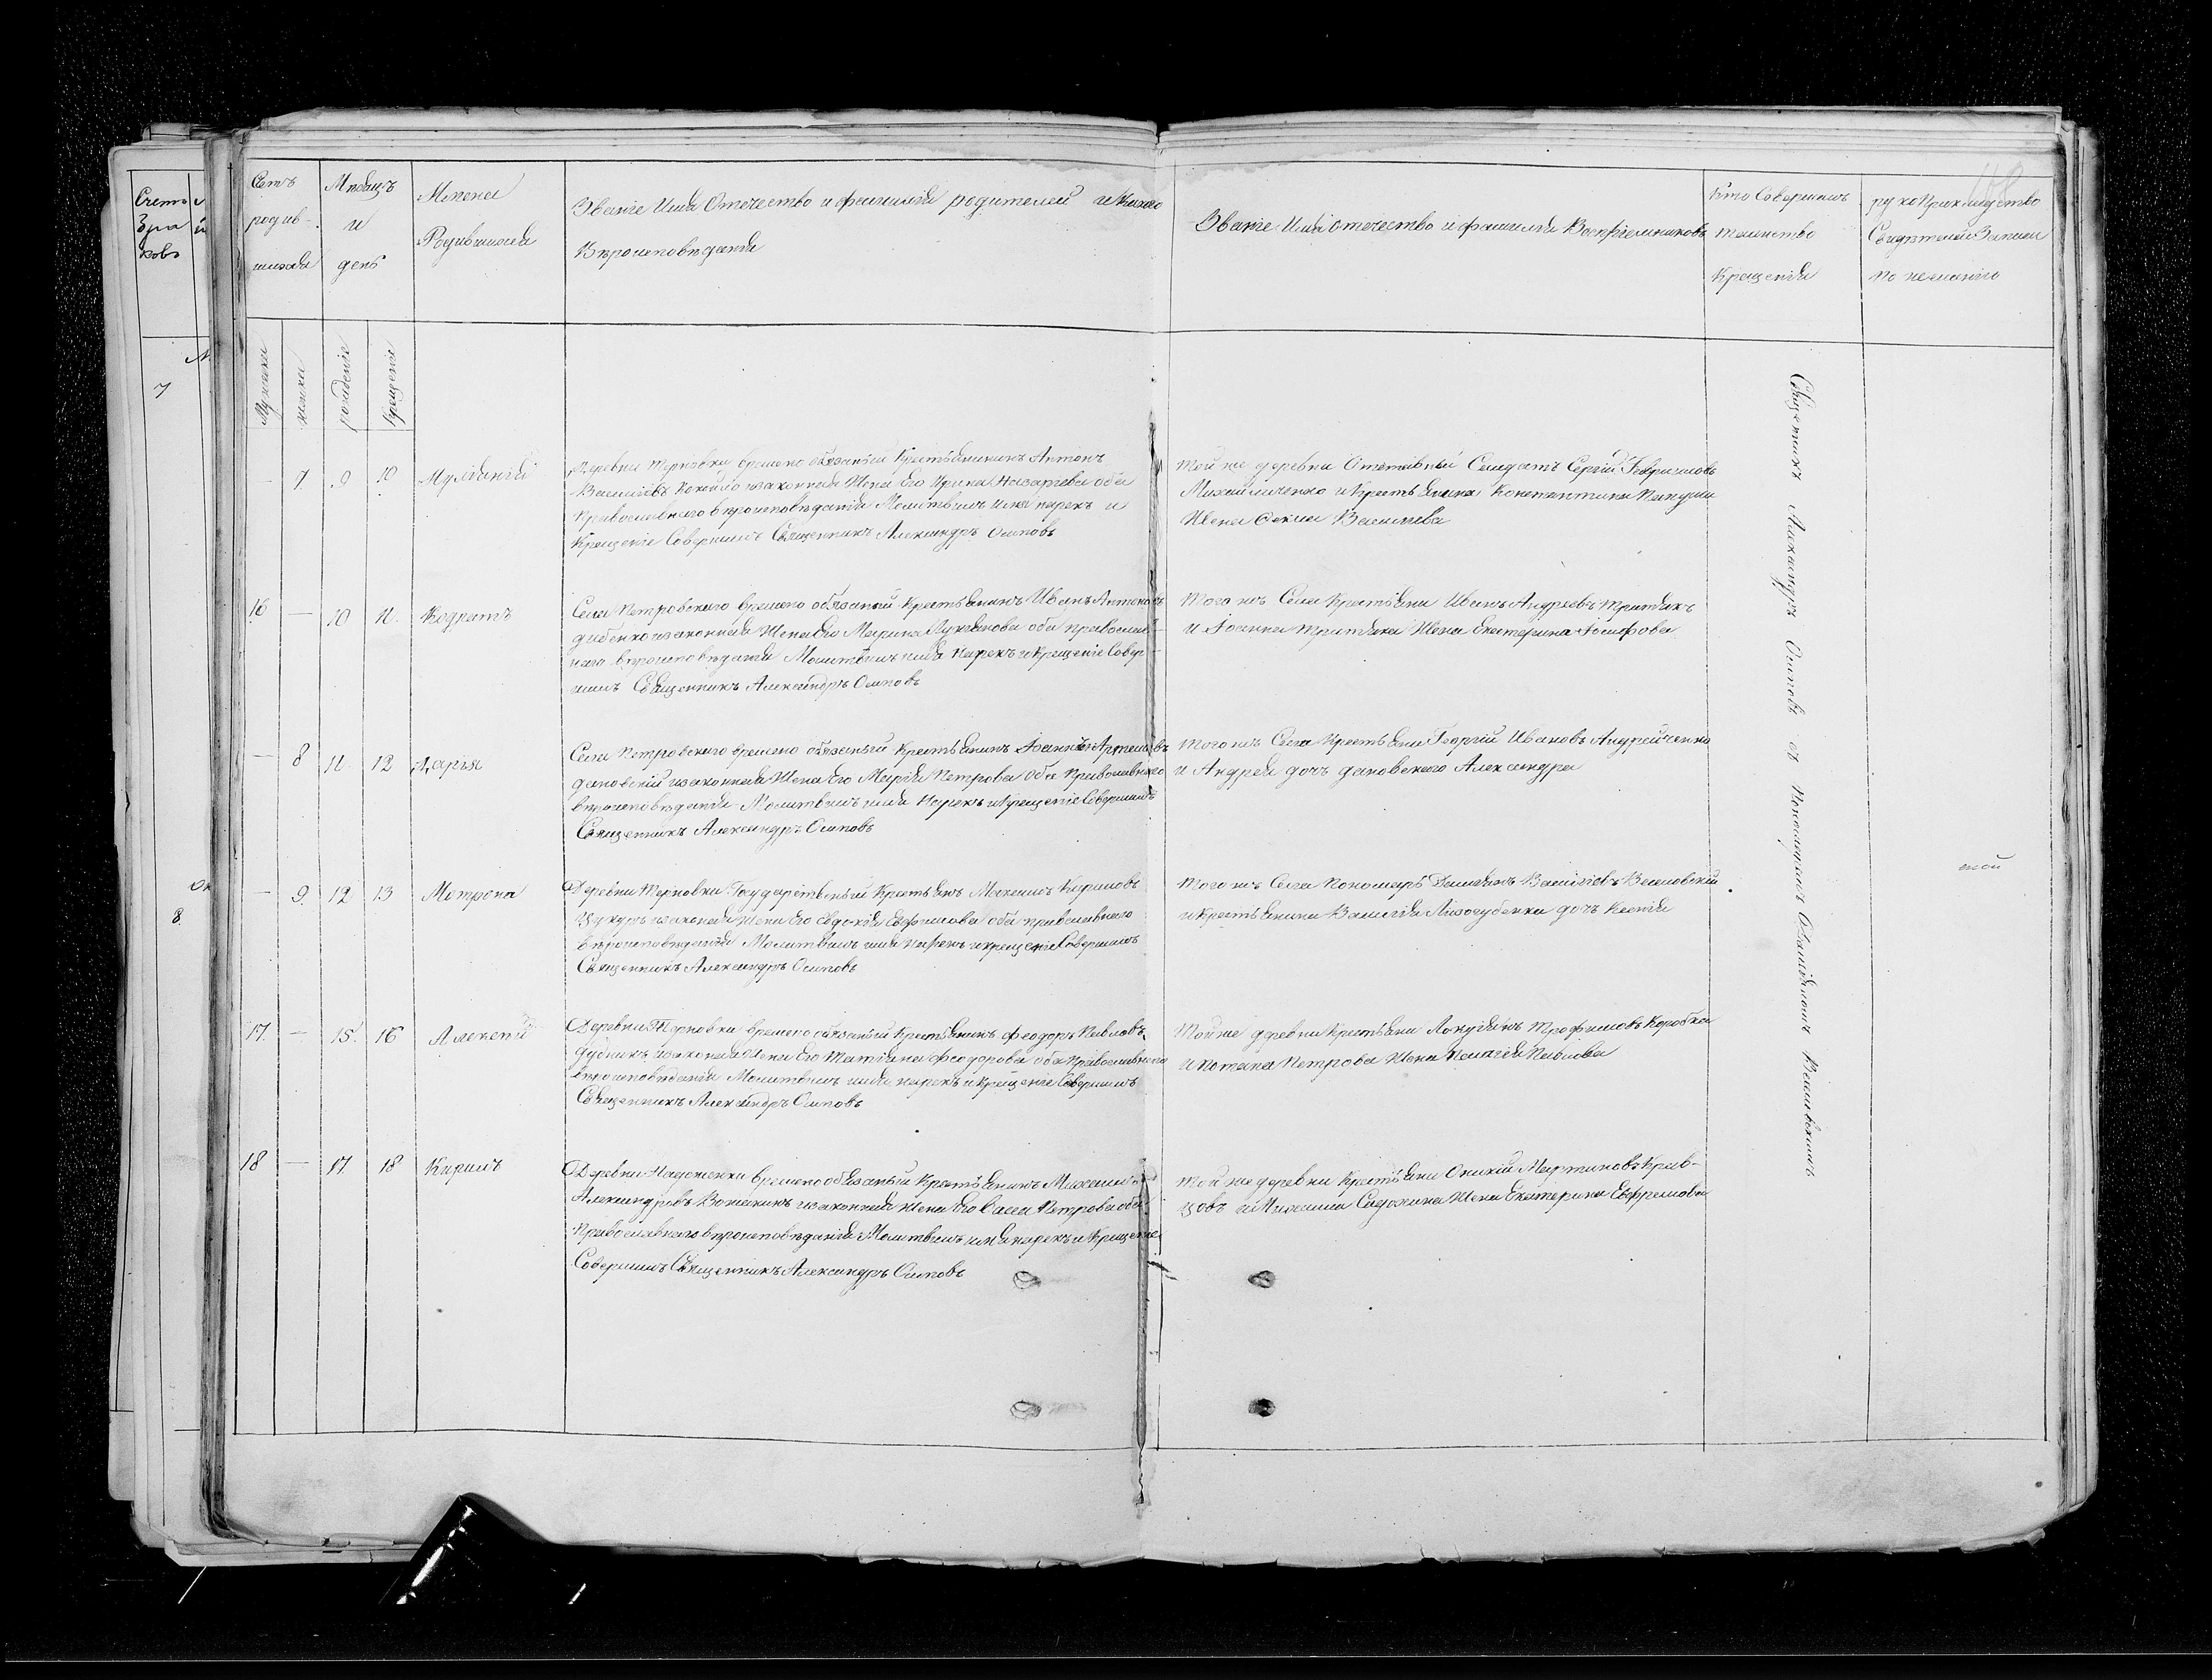 Счетъ
родив-
шихся
Мѣсяцъ
и
день
Имена
Родившихся
Званіе Имя Отечество и фамилія родителей и какого
Вѣроисповѣданія
Званіе Имя Отечество и фамилія Воспріемниковъ
Кто Совершилъ
таинство
Крещенія
рукоприкладство
Свидѣтелей Записи
по желанію
Мужска
женска
рожденіе
крещеніе
Счетъ
Бра
ковъ
7
8
— 7 9 10 Иуліанія
Деревни Терновки временно обязаный Крестьянинъ Антонъ
Василіевъ изаконная Жена Его Ирина Назарьева оба
Православнаго вѣроисповѣданія Молитвилъ имя нарекъ и
Крещеніе Совершилъ Священникъ Александръ Осиповъ
Той же деревни Отставный Солдатъ Сергій
Михайличенко и Крестьянина Константина
Жена Васильева
16 — 10 11 Кодратъ
Села Петровскаго временно обязаный Крестьянинъ Иванъ Антоновъ
дибенко изаконная Жена Его Марина Лукьянова оба православ-
наго вѣроисповѣданія Молитвилъ имя Нарекъ и Крещеніе Совер-
шилъ Священникъ Александръ Осиповъ
Того жъ Села Крестьяни Иванъ Андреевъ Притыкъ
и Іоанна Притыка Жена Екатерина Іосифова
— 8 11 12 Дарья
Села Петровскаго временно обязаный Крестьянинъ Іоаннъ Артемовъ
дановскій изаконная Жена Его Марія Петрова Оба Православнаго
вѣроисповѣданія Молитвилъ имя Нарекъ и Крещеніе Совершилъ
Священникъ Александръ Осиповъ
Того жъ Села Крестьяни Георгій Ивановъ Андрейченко
и Андрея дочь дановскаго Александра
— 9 12 13 Матрона
Деревни Терновки Государственый Крестьянъ Максимъ Кириловъ
Цукуръ изаконая Жена Его Евдокія Ефимова оба православнаго
вѣроисповѣданія Молитвилъ имя Нарекъ и крещеніе Совершилъ
Священникъ Александръ Осиповъ
Того жъ Села Пономарь Даміянъ Василіевъ Василовскій
и Крестьянина Василія Лизогубенка дочь Ксенія
17 — 15 16 Алексій
Деревни Терновки временно обязаный Крестьянинъ Феодоръ Павловъ
дудникъ изаконая Жена Его Татіяна Феодорова оба Православнаго
вѣроисповѣданія Молитвилъ имя нарекъ и крещеніе Совершилъ
Священникъ Александръ Осиповъ
Той же деревни Крестьяни Лукіянъ Трофимовъ Коробка
и Потапа Петрова Жена Пелагія Павлова
18 — 17 18 Кирилъ
Деревни Надеженки временно обязаный Крестьянинъ Михаилъ
Александровъ изаконная Жена Его Васса Петрова оба
Православнаго вѣроисповѣданія Молитвилъ имя нарекъ и Крещеніе
Совершилъ Священникъ Александръ Осиповъ
Той же деревни Крестьяни Оникій Мартиновъ Крив-
цовъ и Михаила Садохина Жена Екатерина Ефремова
Священникъ Александръ Осиповъ съ Пономаремъ Даміяномъ Василовскимъ